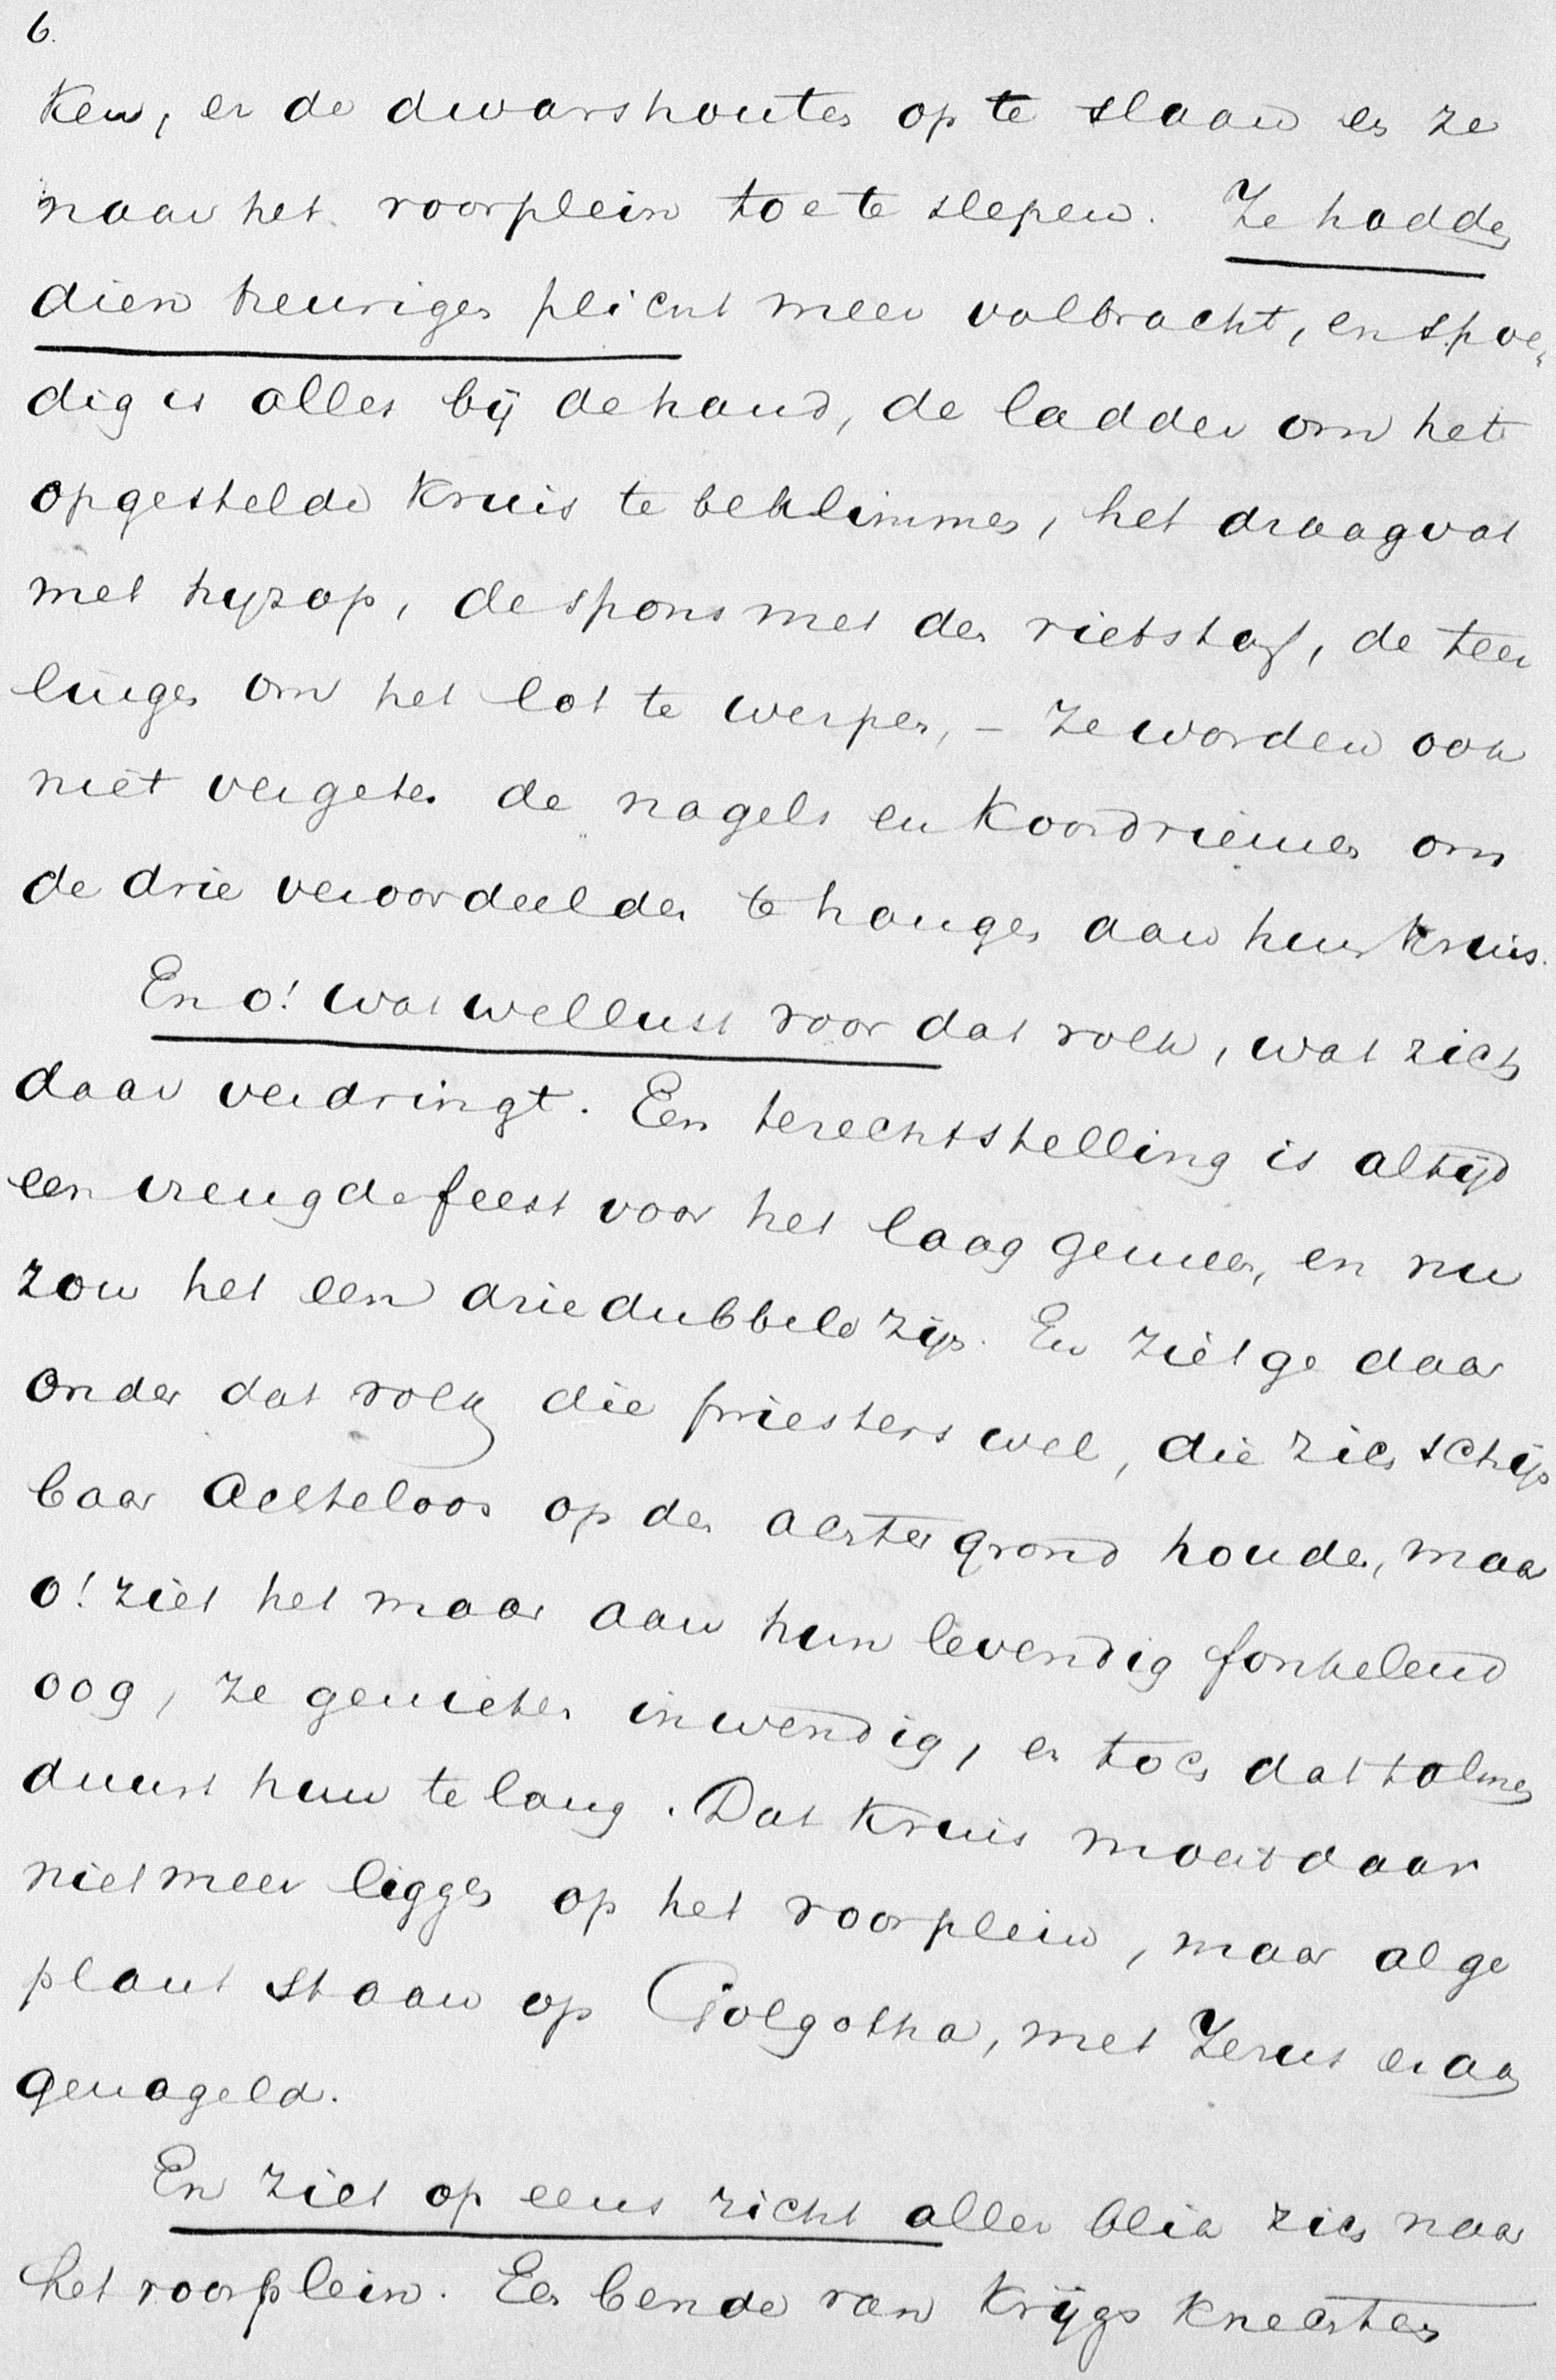 6.
ken, er de dwarshouten op te slaan en ze
naar het voorplein toe te slepen. Ze hadden
dien treurigen plicht meer volbracht, en spoe„
dig is alles bij de hand, de ladder om het
opgestelde kruis te beklimmen, het draagvat
met hyzop, de spons met den rietstaf, de teer
lingen om het lot te werpen, – ze worden ook
niet vergeten de nagels en koordriemen om
de drie veroordeelden te hangen aan hun kruis.
En o! wat wellust voor dat volk, wat zich
daar verdringt. Een terechtstelling is altijd
een vreugdefeest voor het laag gemeen, en nu
zou het een driedubbele zijn. En ziet ge daar
onder dat volk die priesters wel, die zich schijn
baar achteloos op den achtergrond houden, maar
o! ziet het maar aan hun levendig fonkelend
oog, ze genieten inwendig, en toch dat talmen
duurt hun te lang. Dat kruis moest daar
niet meer liggen op het voorplein, maar al ge
plant staan op Golgotha, met Jezus er aan
genageld.
En ziet op eens richt aller blik zich naar
het voorplein. Een bende van krijgsknechten